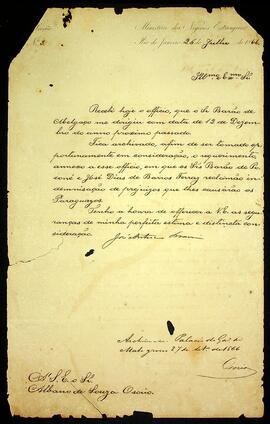 Secção
N. 3
Ministerio dos Negocios Estrangeiros
Rio de Janeiro 26 de Julho de 1866
Illmo. Exmo. Sr.
Recebi hoje o officio, que o Sr. Barão de
Melgaço me dirigio com data de 12 de Dezem
bro do anno proximo passado.
Fica archivado, afim de ser tomado op-
portunamente em consideração, o requerimento,
annexo a esse officio, em que os Srs. Barão de Po-
coné e José Dias de Barros Ferraz reclamão in-
demnisação de prejuizos que lhes causarão os
Paraguayos.
Tenho a honra de offerecer a V. E. as segu-
ranças de minha perfeita estima e distincta con-
sideração.
Archive-se. Palacio do Go. de
Mato grosso 27 de 1866
Osorio
A' S. E. o Sr.
Albano de Souza Osorio.